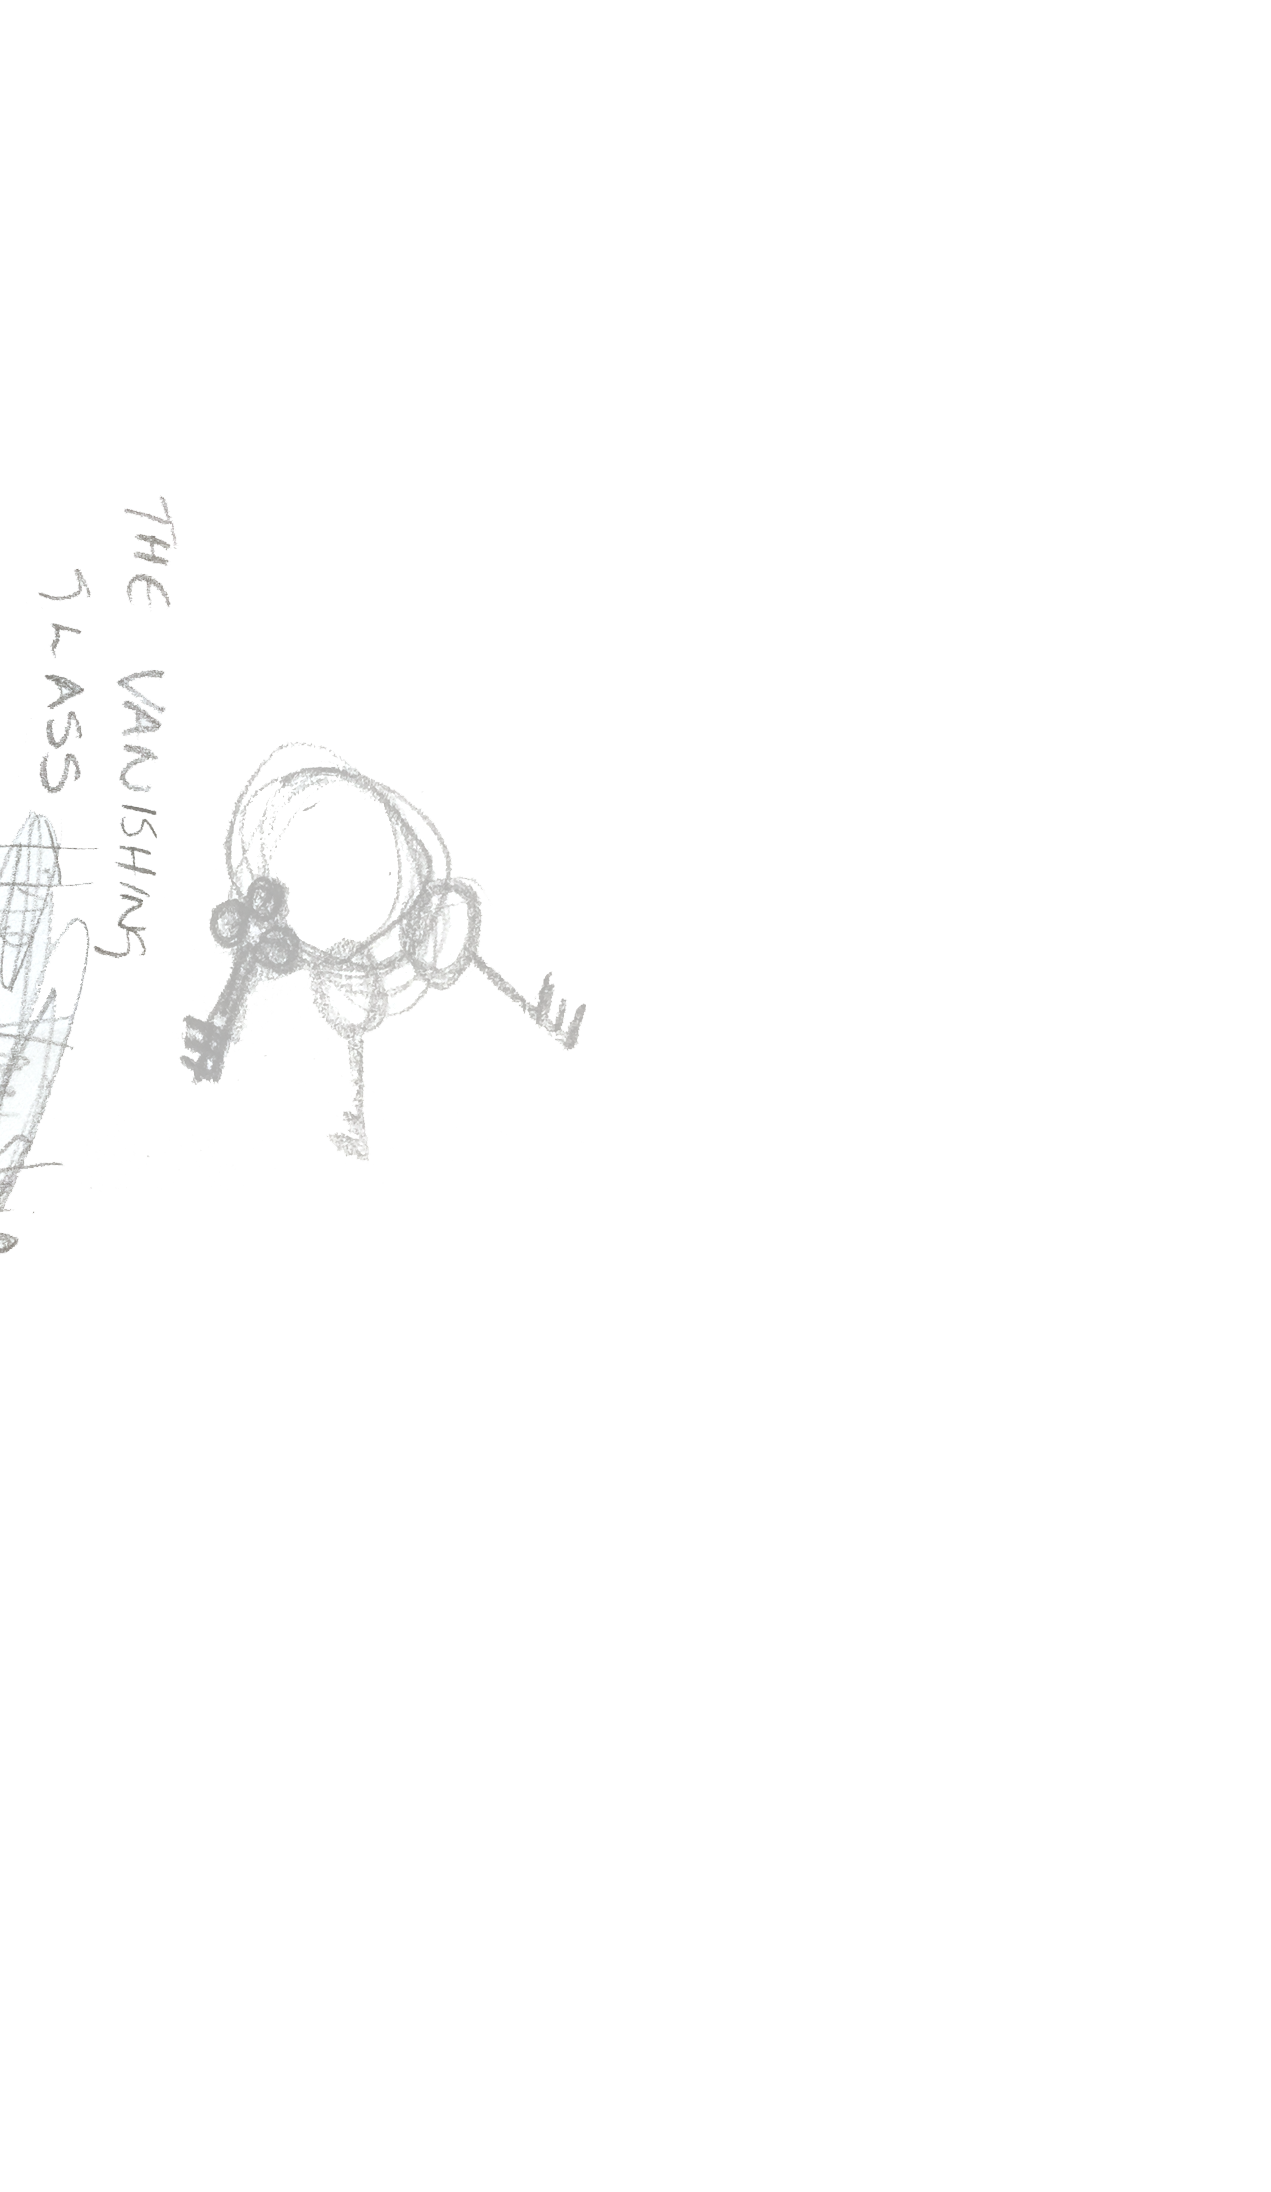 THE VANISHING
GLASS